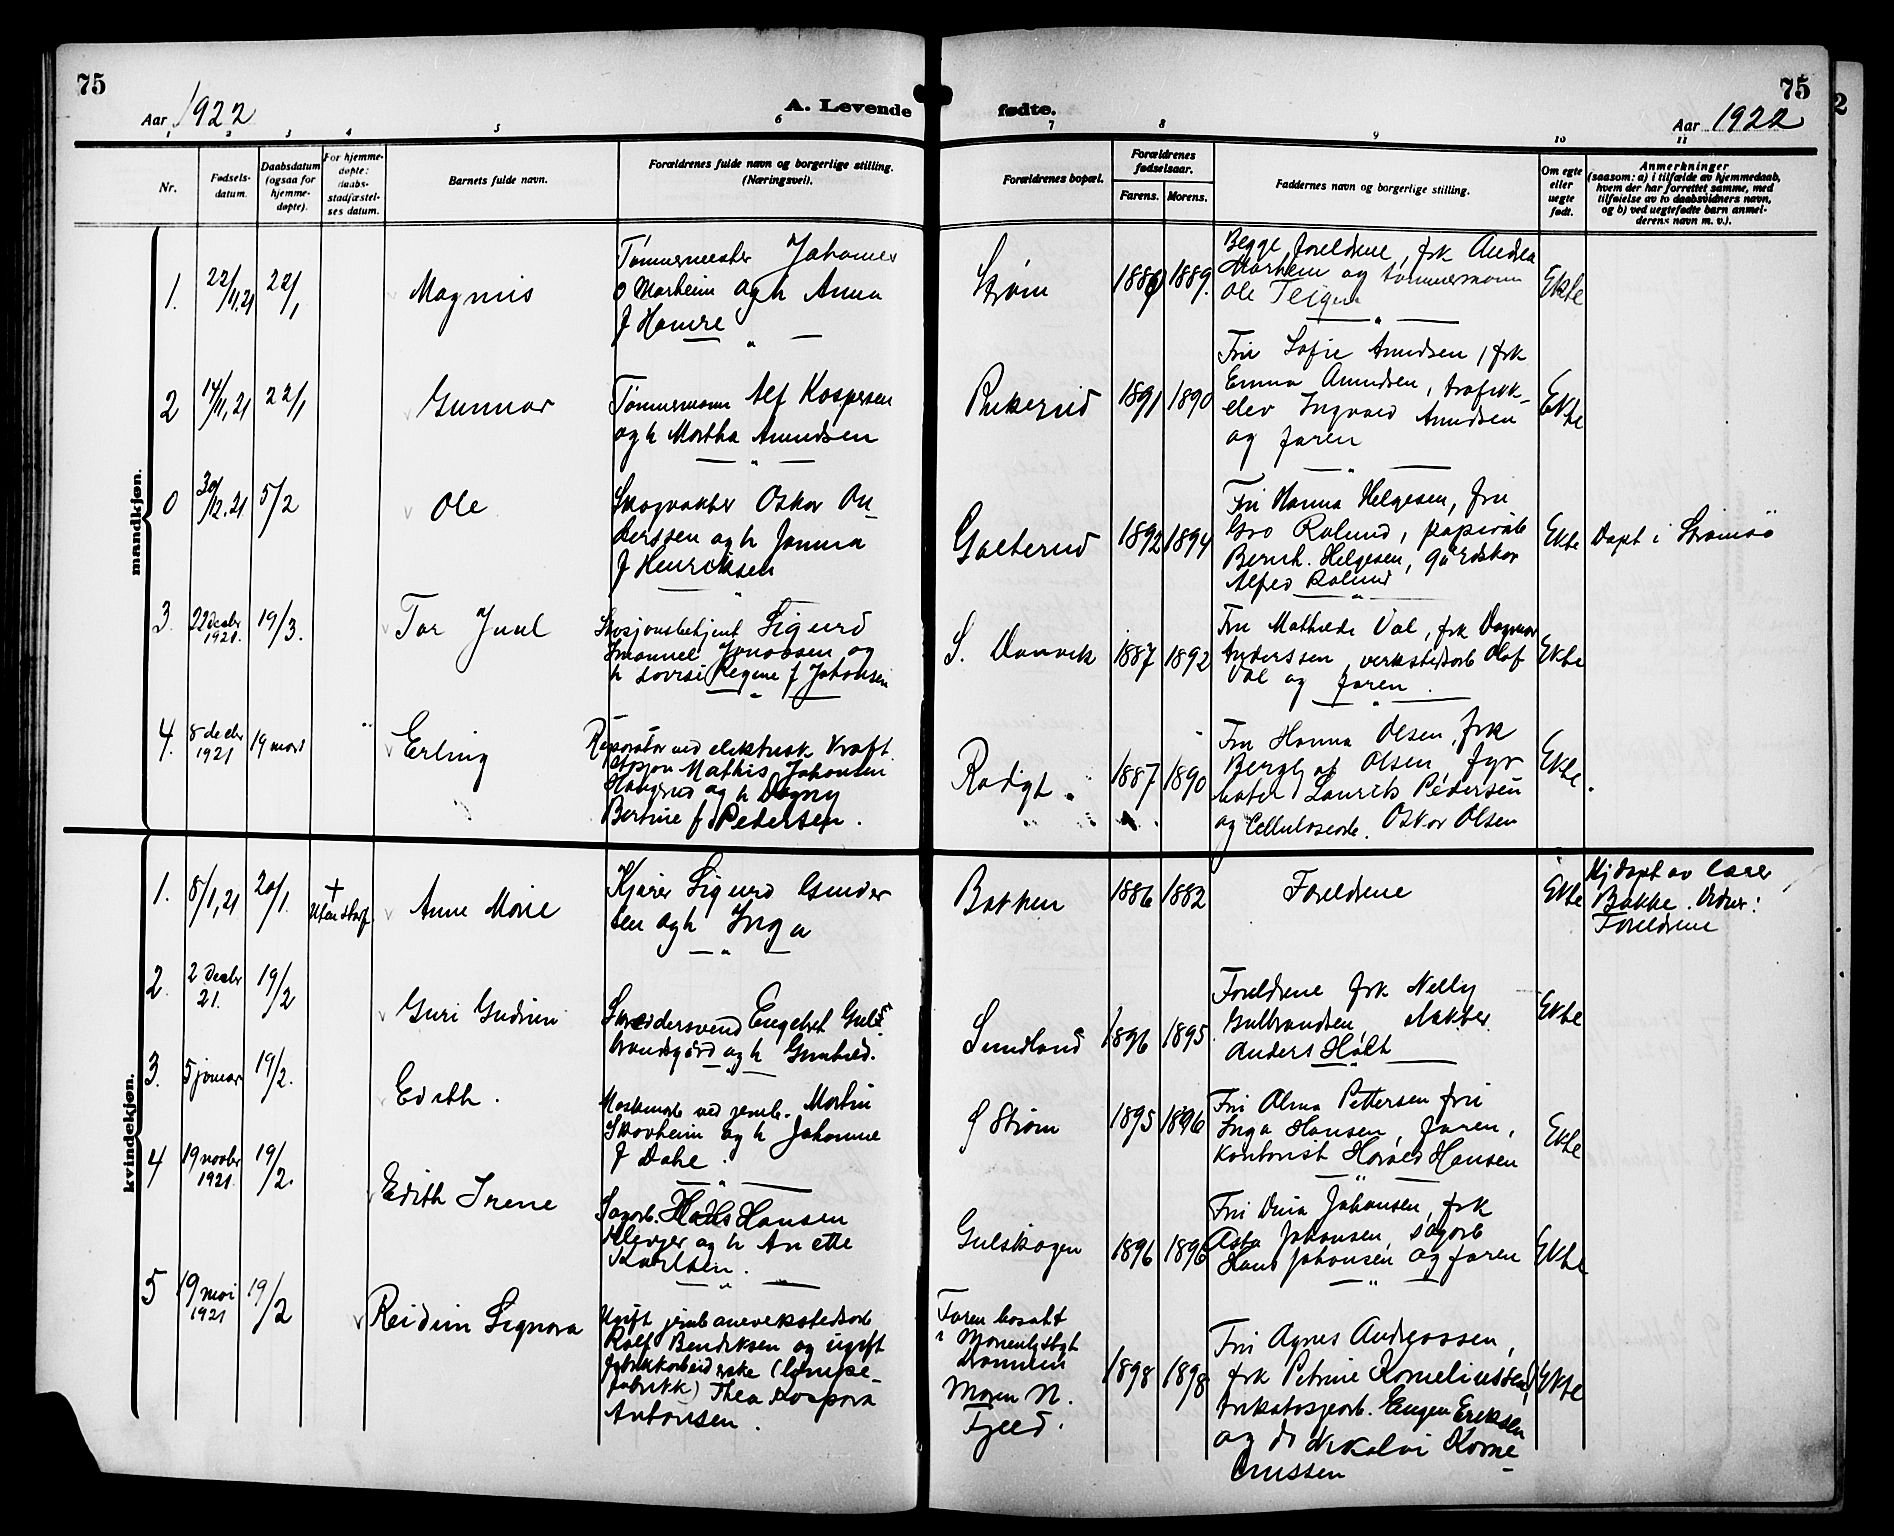 75
75
2
Aar 1922
A. Levende
fødte.
Aar 1922
1 2 3 4 5 6 7 8 9 10 11
Nr.
Fødsels-
datum.
Daabsdatum
(ogsaa for
hjemme-
døpte).
For hjemme-
døpte:
daabs-
stadfæstel-
ses datum.
Barnets fulde navn.
Forældrenes fulde navn og borgerlige stilling.
(Næringsvei).
Forældrenes bopæl.
Forældrenes
fødselsaar.
Farens. Morens.
Faddernes navn og borgerlige stilling.
Om egte
eller
uegte
født.
Anmerkninger
(saasom: a) i tilfælde av hjemmedaab,
hvem der har forrettet samme, med
tilføielse av to daabsvidners navn,
og b) ved uegtefødte barn anmel-
derens navn m. v.).
mandkjøn.
1. 22/11,21 22/1
Magnus
Tømmermester Johannes
O Morheim og h Anna
f Hamre
Strøm
1889.
Begge foreldrene, frk Andrea
Morheim og tømmermann
Ole Teigen
Ekte
2 14/11,21 22/1
Gunnar
Tømmermann Alf Kaspersen
og h Martha Amundsen
1891 1890
Fru Sofie Amundsen, frk
Emma Amundsen, trafikk-
elev Ingvald Amundsen
og faren
Ekte
0 30/12.21 5/2
Ole
Skogvokter Oskar An-
derssen og h Janna
f Henriksen
Golterud
1892 1894
Fru Hanna Helgesen, fru
Gro Rolund, papirarb
Bernh. Helgesen, gårdskar
Alfred Rolund
Ekte
Døpt i Strømsø
3. 22 Decbr
1921. 19/3.
Tor Juul
Stasjonsbetjent Sigurd
Emanuel Jonassen og
h Lovise Regine f Johansen
S. Danvik
1887 1892
Fru Mathilde Val, frk Dagmar
Anderssen, verkstedsarb Olaf
Val og faren.
Ekte
4. 8 decbr
1921 19 mars
Erling
Reparatør ved elektrisk kraft
stasjon Mathis Johansen
Haugerud og h Dagny
Bertine f Pedersen.
Rødgt.
1887 1890
Fru Hanna Olsen, frk
Olsen, fyr
bøter Laurits Pedersen
og Cellulosearb. Oskar Olsen
Ekte.
kvindekjøn.
1. 8/1,21 20/1. †
Uten stadf
Anne Marie
Kjører Sigurd Gunder
sen og h Inga
Bakken
1886 1882
Foreldrene
Ekte
Hj døpt av lærer
Bakke. Vidner:
Foreldrene
2. 2 Decbr
21. 19/2
Guri Gudrun
Skreddersvend Engebret Gul-
brandsgård og h Gunhild.
Sundland
1896 1895
Foreldrene frk Nelly
Gulbrandsen, slakter
Anders Holt
Ekte
3. 5 januar 19/2.
Edith.
Maskinarb ved jernb. Martin
Skovheim og h Johanne
f Dahl.
Ø Strøm
1895 1896
Fru Alma Pettersen fru
Inga Hansen, faren,
kontorist Harald Hansen
Ekte
4 19 novbr
1921. 19/2.
Edith Irene
Sagarb. Hans Hansen
Klevjer og h Anette
Karlsen.
Gulskogen
1896 1896
Fru Dina Johansen, frk
Asta Johansen, sagarb
Hans Johansen og faren
Ekte
5 19 mai
1921 19/2
Reidun Signora
Ugift jernbaneverkstedsarb
Rolf Bendiksen og ugift
fabrikkarbeiderske (lampe-
fabrikk) Thea Kaspara
Antonsen.
Faren bosatt
i Marienlystgt
Drammen
Moren N.
Fjeld.
1898 1898
Fru Agnes Andreassen,
frk Petrine Korneliussen,
trikotasjearb. Eugen Eriksen
og do Nikolai Korne
liussen
Ekte